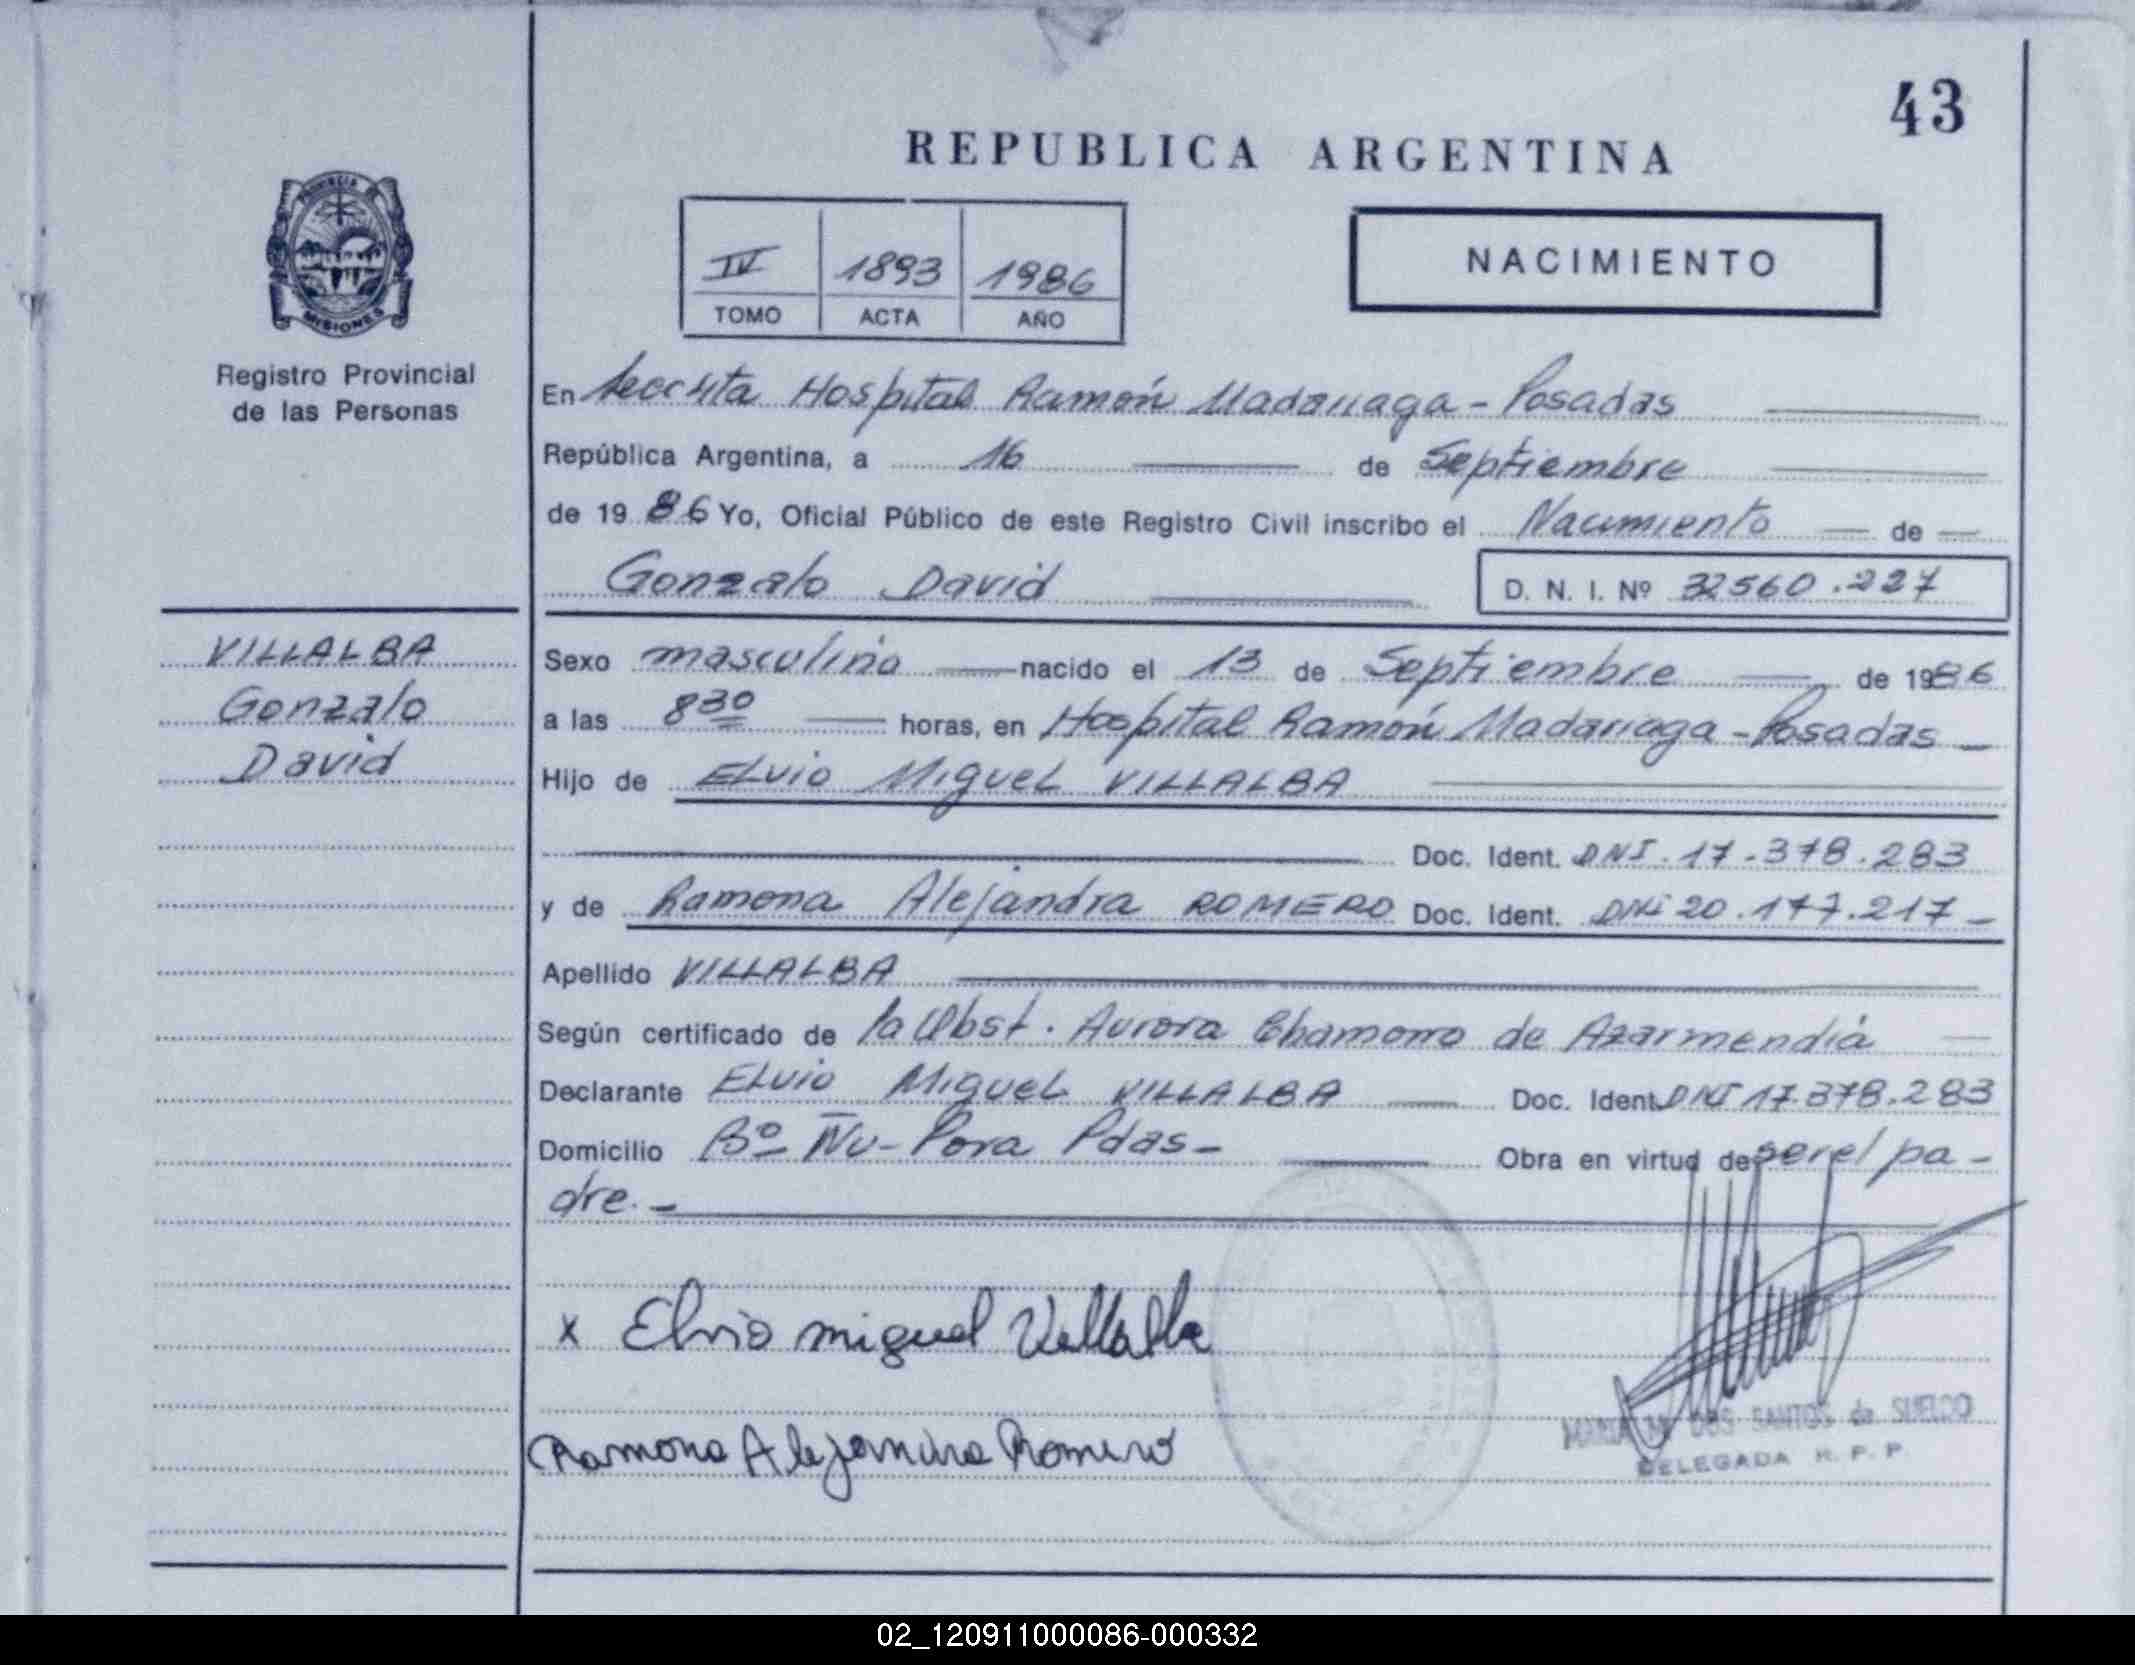 43
REPUBLICA ARGENTINA
PROVINCIA DE
MISIONES
Registro Provincial
de las Personas
IV 1893 1986
TOMO ACTA AÑO
NACIMIENTO
En Hospital Ramón Madariaga - Posadas
República Argentina, a 16 de Septiembre
de 1986 Yo, Oficial Público de este Registro Civil inscribo el Nacimiento de
Gonzalo David D. N. I. Nº 32560.227
VILLALBA
Gonzalo
David
Sexo masculino nacido el 13 de Septiembre de 1986
a las 8 30 horas, en Hospital Ramón Madariaga - Posadas
Hijo de ELVIO MIGUEL VILLALBA
Doc. Ident. DNI. 17.378.283
y de Ramona Alejandra ROMERO Doc. Ident. DNI 20.177.217
Apellido VILLALBA
Según certificado de la Obst. Aurora Chamorro de Azarmendia
Declarante ELVIO MIGUEL VILLALBA Doc. Ident. DNI 17.378.283
Domicilio Bº Ñu-Pora Pdas- Obra en virtud de ser el pa-
dre.-
x Elvio miguel Villalba
Ramona Alejandra Romero
DOS SANTOS de
DELEGADA R. P. P.
02_120911000086-000332